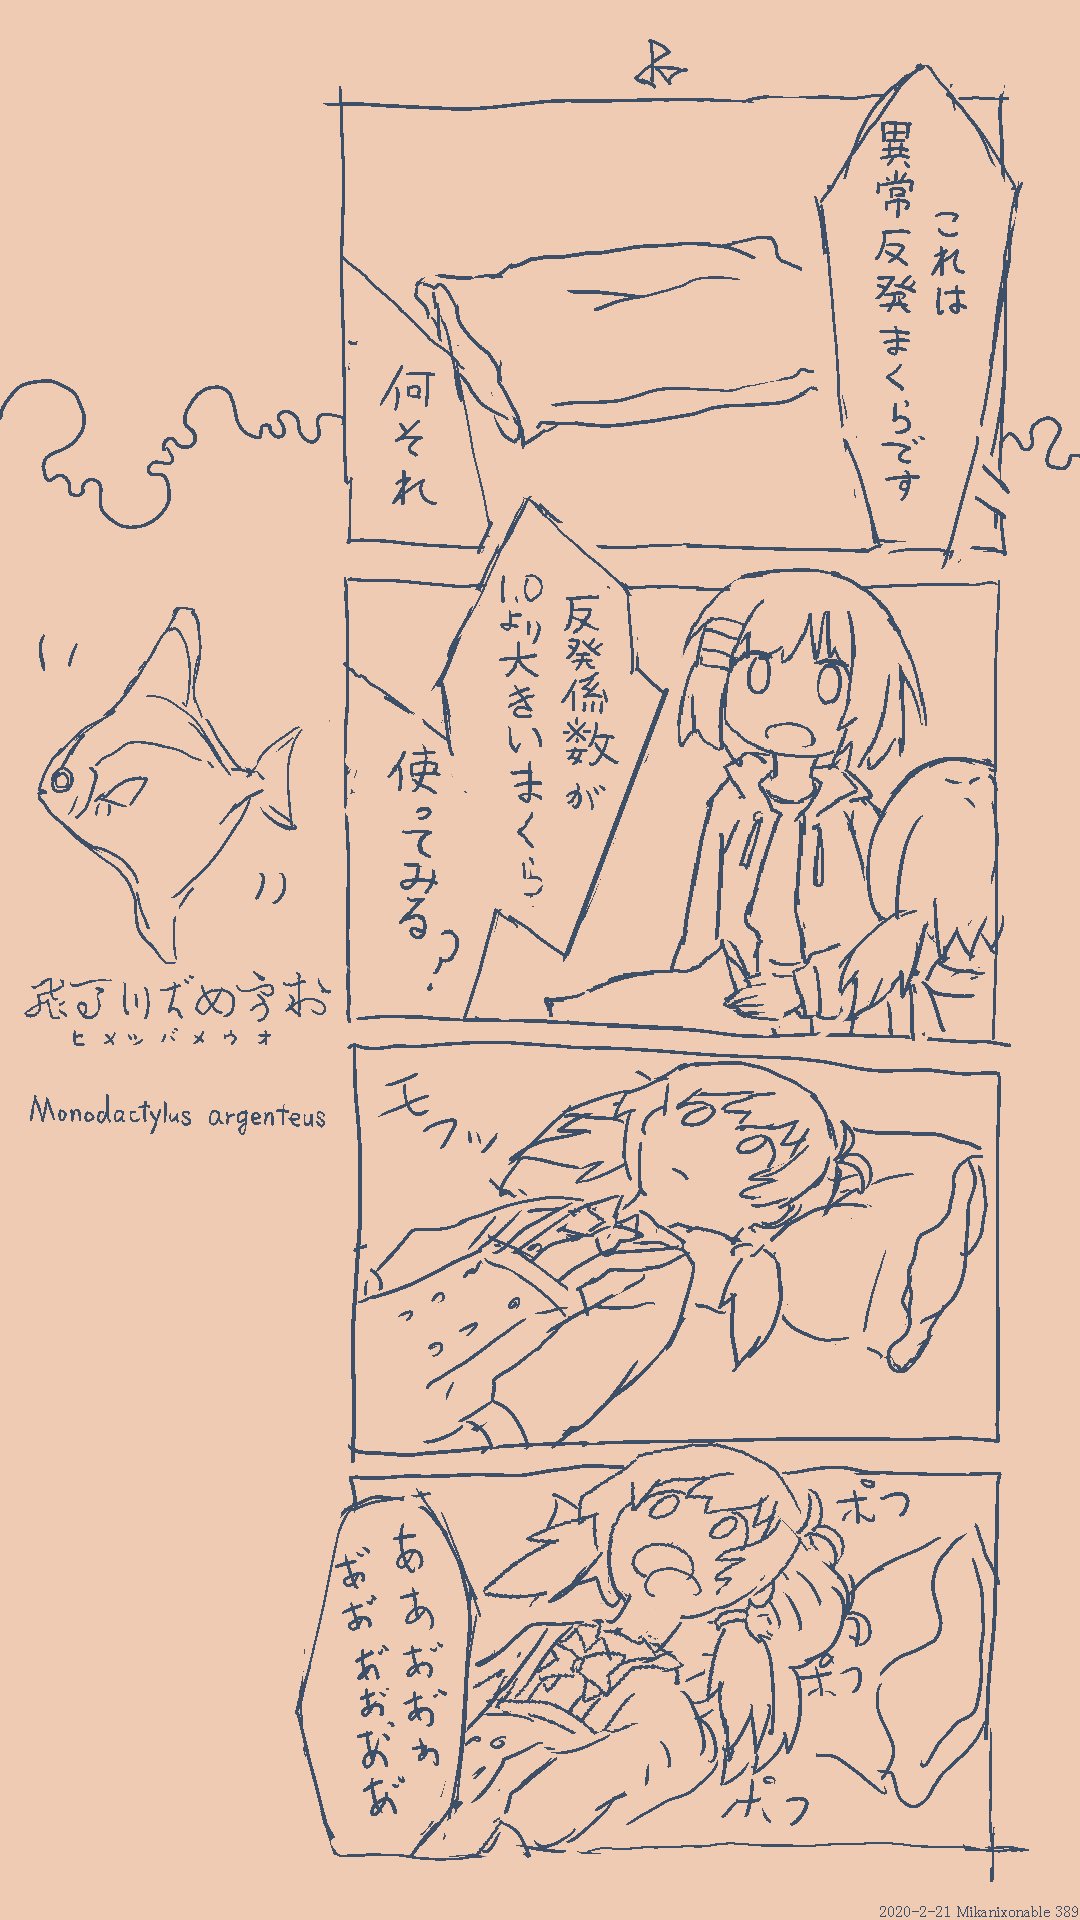 これは
異常反発まくらです
何それ
反発係数が
1.0より大きいまくら
使ってみる?
モフッ
ポフ
ポフ
ポフ
ヒメツバメウオ
Monodactylus argenteus
2020-2-21 Mikanixonable 389